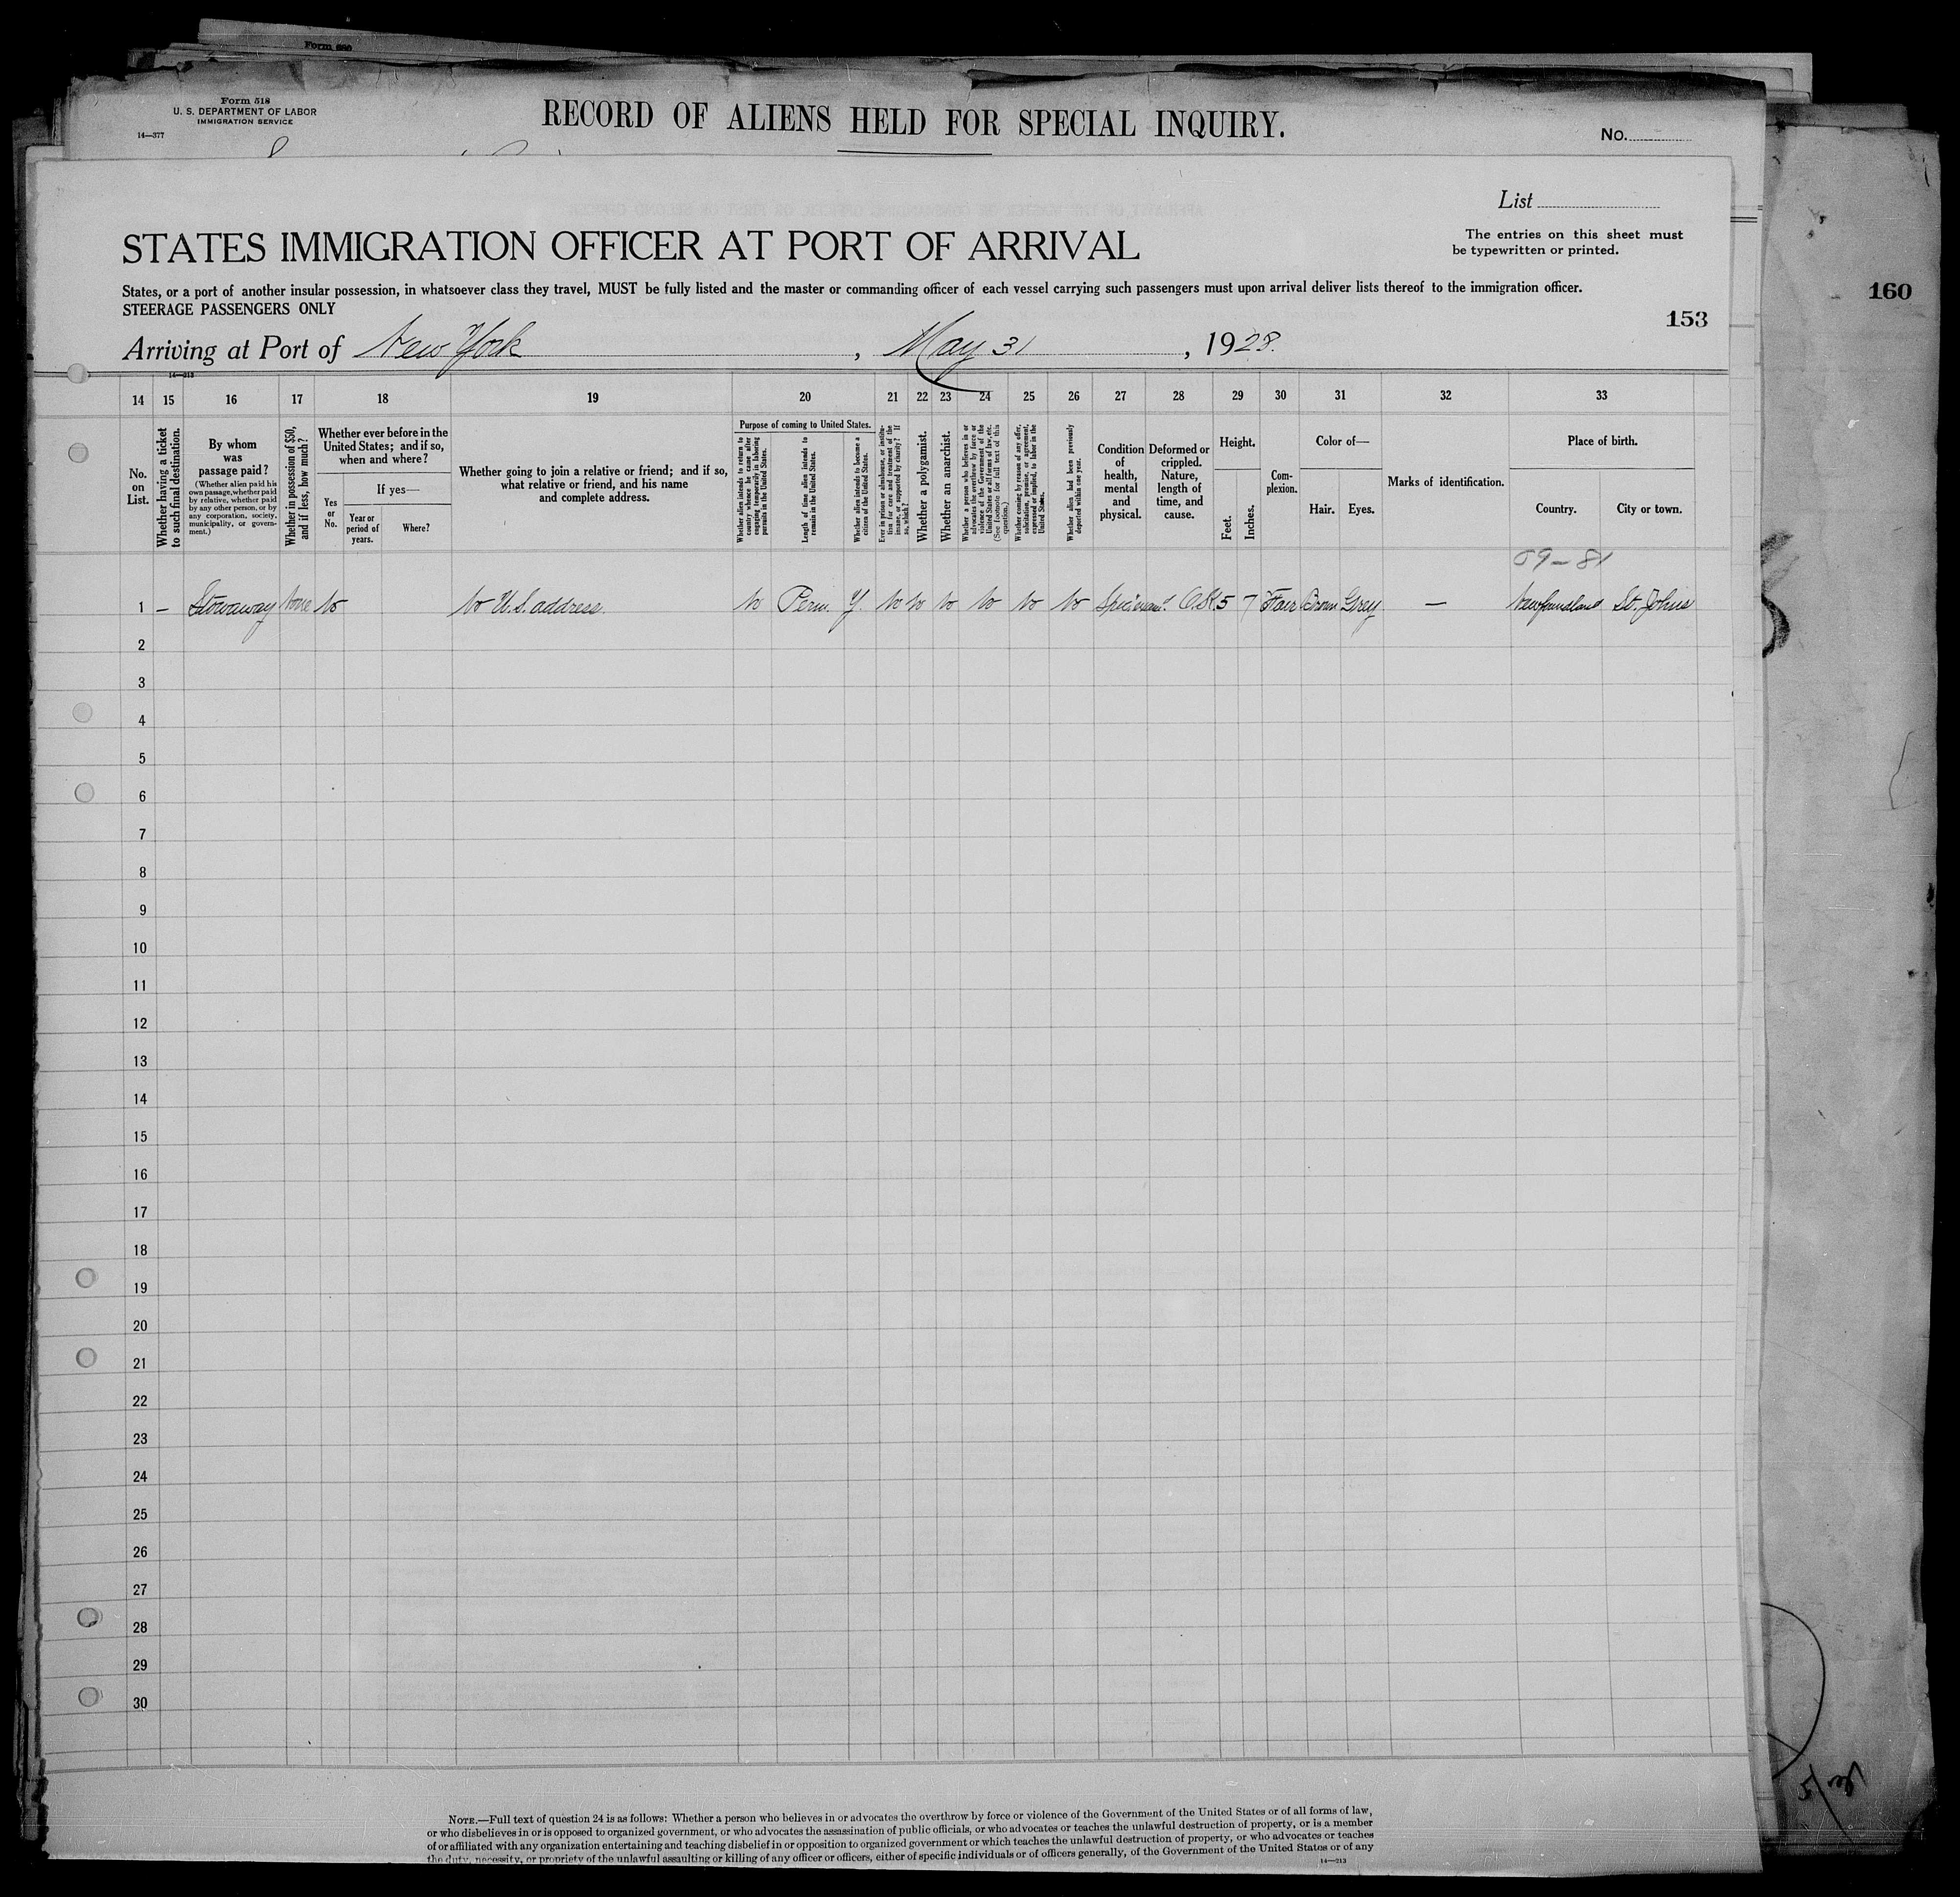 Form 680
Form 518
U. S. DEPARTMENT OF LABOR
IMMIGRATION SERVICE
14—377
RECORD OF ALIENS HELD FOR SPECIAL INQUIRY.
No.
160
List
The entries on this sheet must
be typewritten or printed.
STATES IMMIGRATION OFFICER AT PORT OF ARRIVAL
States, or a port of another insular possession, in whatsoever class they travel, MUST be fully listed and the master or commanding officer of each vessel carrying such passengers must upon arrival deliver lists thereof to the immigration officer.
STEERAGE PASSENGERS ONLY
153
Arriving at Port of New York, May 31, 1928.
14—213
14 15 16 17 18 19 20 21 22 23 24 25 26 27 28 29 30 31 32 33
No. on List.
Whether having a ticket to such final destination.
By whom was passage paid?
(Whether alien paid his own passage, whether paid by relative, whether paid by any other person, or by any corporation, society, municipality, or government.)
Whether in possession of $50, and if less, how much?
Whether ever before in the United States; and if so, when and where?
Yes or No.
If yes—
Year or period of years.
Where?
Whether going to join a relative or friend; and if so, what relative or friend, and his name and complete address.
Purpose of coming to United States.
Whether alien intends to return to country whence he came after engaging temporarily in laboring pursuits in the United States.
Length of time alien intends to remain in the United States.
Whether alien intends to become a citizen of the United States.
Ever in prison or almshouse, or institution for care and treatment of the insane, or supported by charity? If so, which?
Whether a polygamist.
Whether an anarchist.
Whether a person who believes in or advocates the overthrow by force or violence of the Government of the United States or all forms of law, etc. (See footnote for full text of this question.)
Whether coming by reason of any offer, solicitation, promise, or agreement, expressed or implied, to labor in the United States.
Whether alien had been previously deported within one year.
Condition of health, mental and physical.
Deformed or crippled. Nature, length of time, and cause.
Height.
Feet.
Inches.
Com-plexion.
Color of—
Hair.
Eyes.
Marks of identification.
Place of birth.
Country.
City or town.
69–81
1 — Stowaway None No No U.S. address. No Perm. Y. No No No No No No O.K. 5 7 Fair Brown Grey — Newfoundland St. Johns
2
3
4
5
6
7
8
9
10
11
12
13
14
15
16
17
18
19
20
21
22
23
24
25
26
27
28
29
30
NOTE.—Full text of question 24 is as follows: Whether a person who believes in or advocates the overthrow by force or violence of the Government of the United States or of all forms of law,
or who disbelieves in or is opposed to organized government, or who advocates the assassination of public officials, or who advocates or teaches the unlawful destruction of property, or is a member
of or affiliated with any organization entertaining and teaching disbelief in or opposition to organized government or which teaches the unlawful destruction of property, or who advocates or teaches
the duty, necessity, or propriety of the unlawful assaulting or killing of any officer or officers, either of specific individuals or of officers generally, of the Government of the United States or of any
14—213